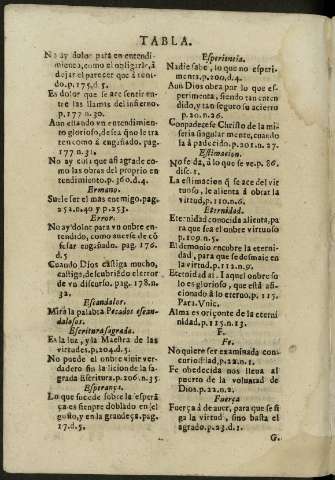 TABLA.
No ay dolor para en entendi-
miento, como el obligarle, á
dejar el parecer que á teni-
do. p. 175. d 5.
Es dolor que se aze sentir en-
tre las llamas del infierno.
p. 177 n. 30.
Aun estando vn entendimien-
to glorioso, desea q̃ no le tra
ten como á engañado. pag.
177. n 31.
No ay cosa que assi agrade co-
mo las obras del proprio en
tendimiento. p. 360. d. 4.
Ermano.
Suele ser el mas enemigo. pag.
252. n. 40 y p. 253.
Error.
No ay dolor para vn onbre en-
tendido, como aueṛse de cõ
fesar engañado. pag. 176.
d 5
Cuando Dios castiga mucho,
castiga, descubriẽdo el error
de vn discurso. pag. 178. n.
32.
Escandalos.
Mira la palabra Pecados escan-
dalosos.
Escritura sagrada.
Es la luz, y la Maestra de las
virtudes. p, 204. d 5.
No puede el onbre viuir ver-
dadero sin la licion de la sa-
grada Escritura. p. 206. n. 35.
Esperança.
Lo que sucede sobre la esperã
ça es sienpre doblado en el
gosto, y en la grandeça. pag.
17. d. 5.
Esperiencia.
Nadie sabe, lo que no esperi-
menta. p. 200. d. 4.
Aun Dios obra por lo que es-
perimenta, siendo tan enten
dido, y tan seguro su acierto
p. 20. n. 26.
Conpadecese Christo de la mi-
seria singular mente, cuando
la á padecido. p. 201. n. 27.
Estimacion.
No se dá, á lo que se ve. p. 86.
disc. 1.
La estimacion q̃ se ace del vir
tuoso, le alienta á obrar la
virtud, p. 110. n. 6.
Eternidad.
Eternidad conocida alienta, pa
ra que sea el onbre virtuoso
p. 109. n. 5.
El demonio encubre la eterni-
dad, para que se desmaie en
la virtud. p. 112. n. 9.
Eternidad ai. I aquel onbre so
lo es glorioso, que está afi-
cionado á lo eterno. p. 115.
Para. Vnic.
Alma es origonte de la eterni
nidad. p. 115. n. 13.
F.
Fe.
No quiere ser examinada con
curiosidad. p. 22. n. 1.
Fe obedecida nos lleua al
puerto de la voluntad de
Dios. p. 22. n. 2.
Fuerça
Fuerça á de auer, para que se si
ga la virtud, sino basta el
agrado. p. 23. d. 1.
G.